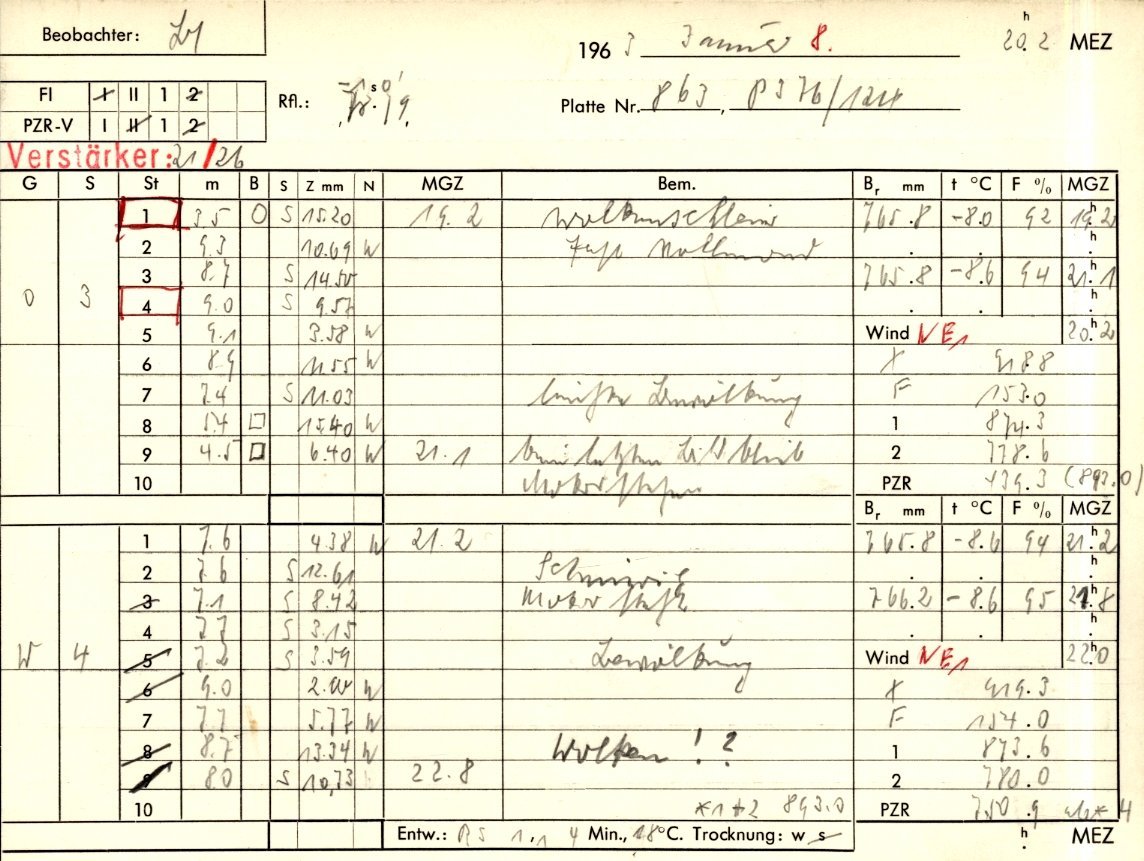 Beobachter:
196 3 Januar 8. 20.2 h MEZ
FI I II 1 2
PZR-V I II 1 2
Rfl.:
Platte Nr. 863, P376/124
Verstärker: 21/26
G S St m B S Z mm N MGZ Bem. Br mm t °C F % MGZ
1 3.5 O S 15.20 19.2 765.8 -8.0 92 19.2 h
2 9.3 10.69 W Fast Vollmond h
3 8.7 S 14.50 765.8 -8.6 94 21.1 h
0 3 4 9.0 S 9.57 h
5 9.1 3.58 W Wind NE1 20.2 h
6 8.9 11.55 W X 918.8
7 7.4 S 11.03 Bewölkung F 153.0
8 5.4 □ 15.40 W 1 874.3
9 4.5 □ 6.40 W 21.1 beim letzten Bild blieb 2 778.6
10 Motor stehen PZR 739.3 (893.0)
Br mm t °C F % MGZ
1 7.6 4.38 W 21.2 765.8 -8.6 94 21.2 h
2 7.6 S 12.61 h
3 7.1 S 8.42 Motor 766.2 -8.6 95 21.8 h
4 7.7 S 3.15 h
W 4 5 7.2 S 3.59 Bewölkung Wind NE1 22.0 h
6 9.0 W X 919.3
7 7.7 5.77 W F 154.0
8 8.7 13.34 W Wolken!? 1 873.6
9 8.0 S 10,73 22.8 2 780.0
10 *1+2 893.0 PZR 750.9 ab * 4
Entw.: RS 1:1 4 Min., 18°C. Trocknung: w s h MEZ